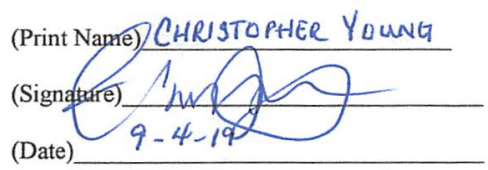 (Print Name) CHRISTOPHER YOUNG
(Signature)
(Date) 9-4-19